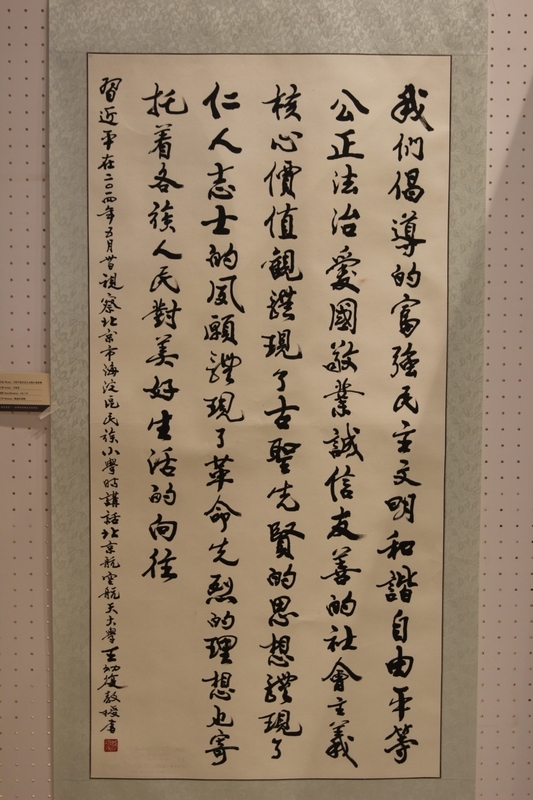 我們倡導的富強民主文明和諧自由平等
公正法治愛國敬業誠信友善的社會主義
核心價值觀體現了古聖先賢的思想體現了
仁人志士的夙願體現了革命先烈的理想也寄
托着各族人民對美好生活的向往
習近平在二〇一四年五月卅日視察北京市海淀區民族小學時講話北京航空航天大學王幼復教授書